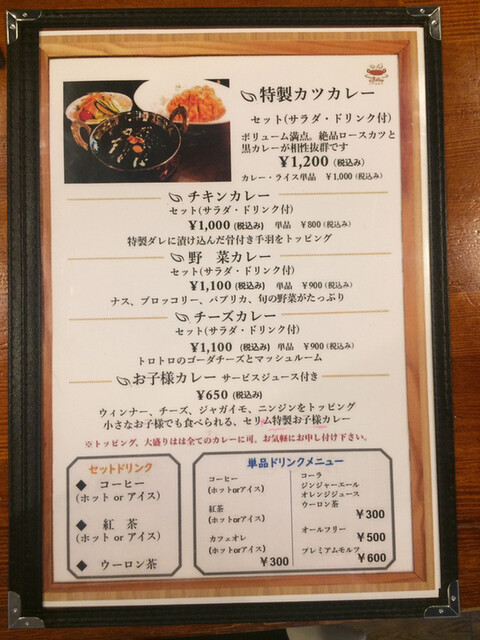 特製カツカレー
セット(サラダ・ドリンク付)
ボリューム満点。絶品ロースカツと
黒カレーが相性抜群です
¥1,200 (税込み)
カレー・ライス単品 ¥1,000 (税込み)
チキンカレー
セット(サラダ・ドリンク付)
¥1,000 (税込み) 単品 ¥800 (税込み)
特製ダレに漬け込んだ骨付き手羽をトッピング
野 菜カレー
セット(サラダ・ドリンク付)
¥1,100 (税込み) 単品 ¥900 (税込み)
ナス、ブロッコリー、パプリカ、旬の野菜がたっぷり
チーズカレー
セット(サラダ・ドリンク付)
¥1,100 (税込み) 単品 ¥900 (税込み)
トロトロのゴーダチーズとマッシュルーム
お子様カレー サービスジュース付き
¥650 (税込み)
ウィンナー、チーズ、ジャガイモ、ニンジンをトッピング
小さなお子様でも食べられる、セリム特製お子様カレー
※トッピング、大盛りはは全てのカレーに可。お気軽にお申し付け下さい。
セットドリンク
◆ コーヒー
(ホット or アイス)
◆ 紅 茶
(ホット or アイス)
◆ ウーロン茶
単品ドリンクメニュー
コーヒー
(ホットorアイス)
紅茶
(ホットorアイス)
カフェオレ
(ホットorアイス)
¥300
コーラ
ジンジャーエール
オレンジジュース
ウーロン茶
¥300
オールフリー
¥500
プレミアムモルツ
¥600